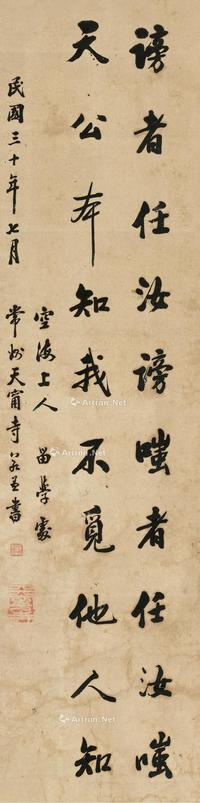 谤者任汝谤嗤者任汝嗤
天公本知我不觅他人知
空海上人 留学处
民国三十年七月 常州天甯寺
书
Artron.Net
Artron.Net
Artron.Net
Artron.Net